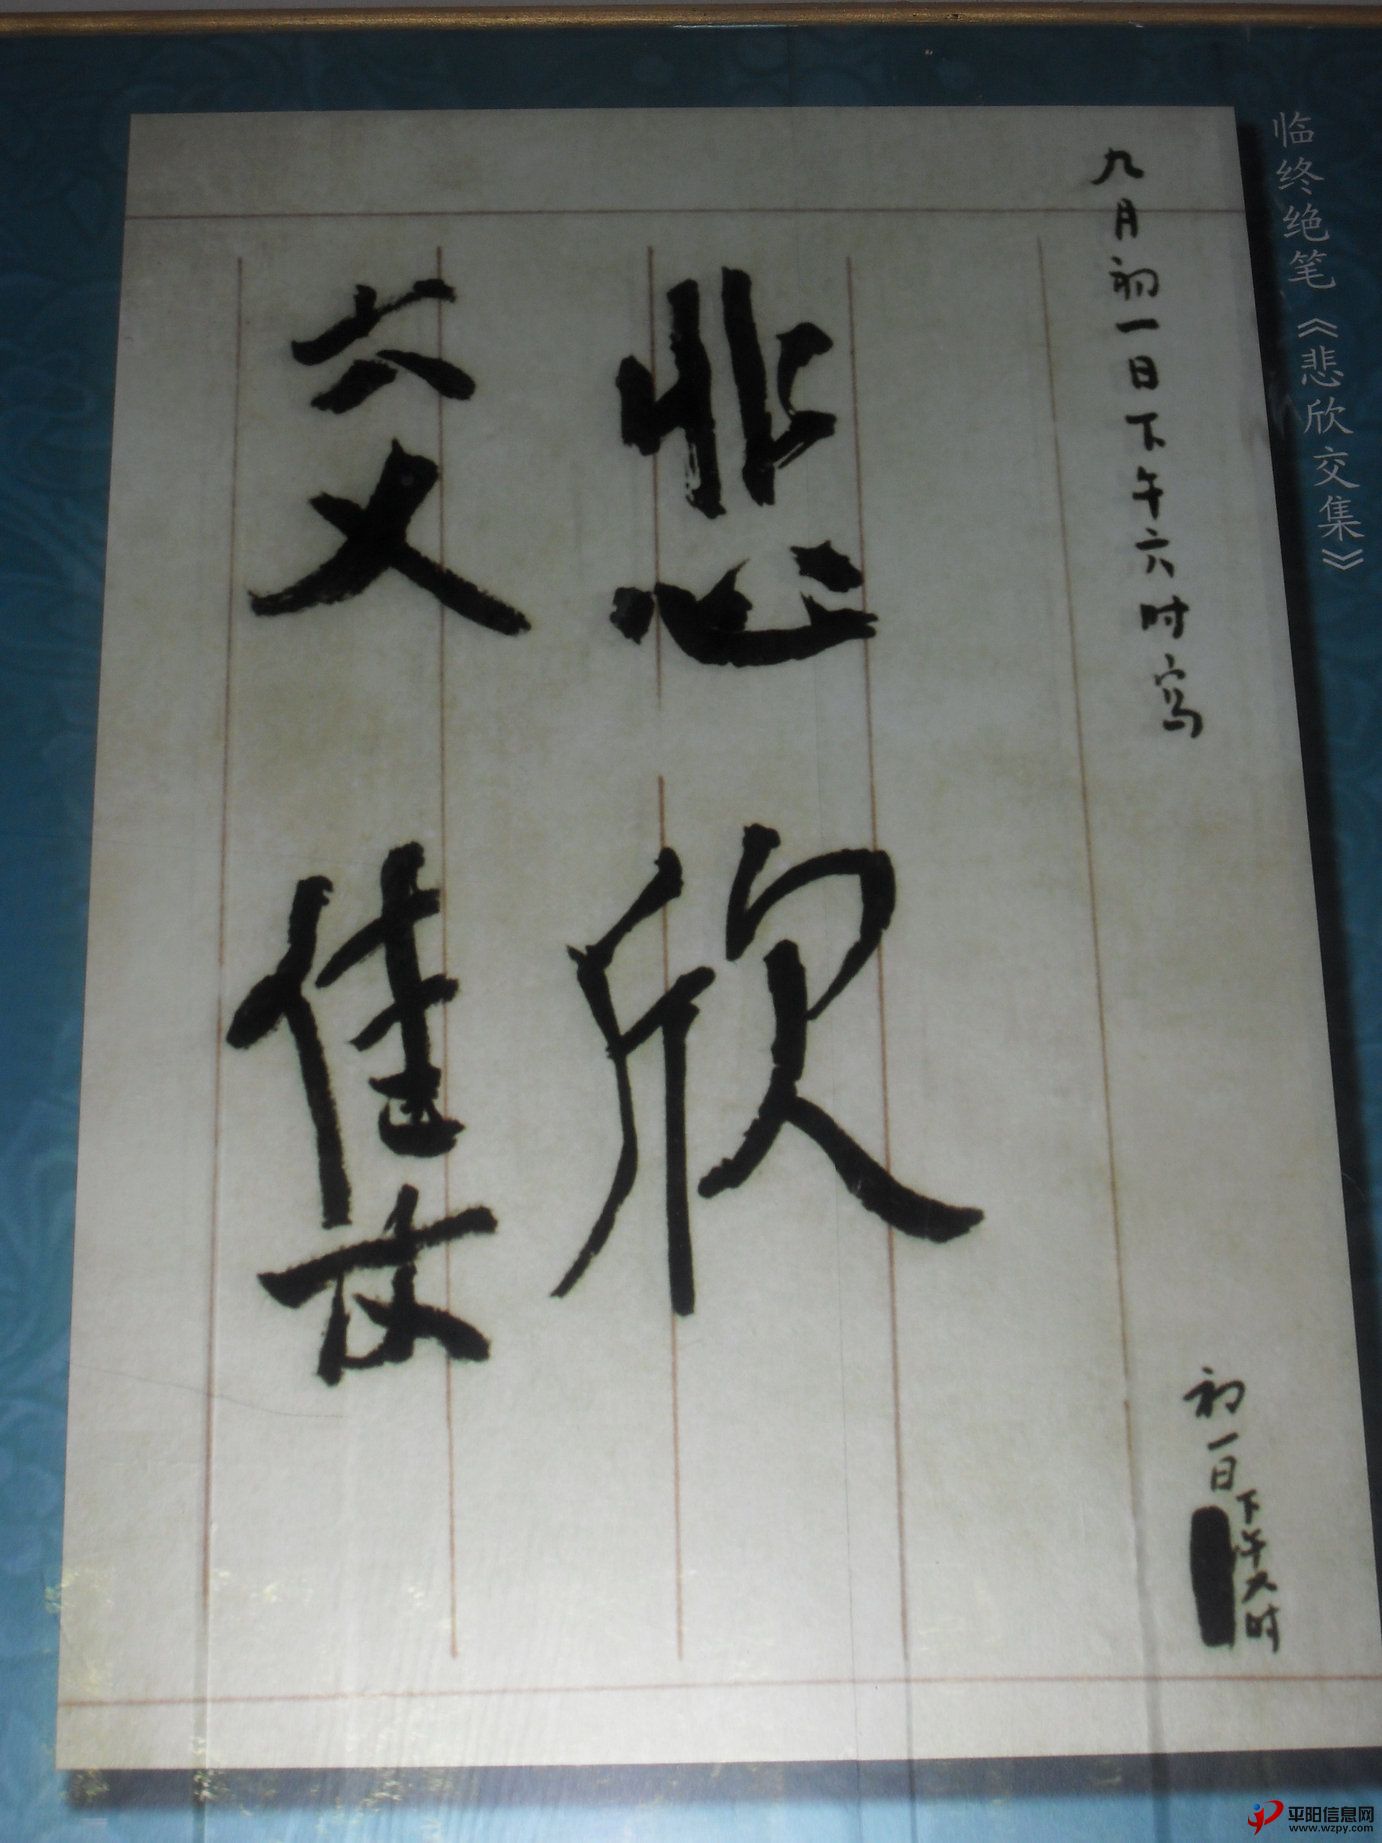 临终绝笔《悲欣交集》
九月初一日下午六时写
初一日下午六时
悲欣
交集
平阳信息网
www.wzpy.com